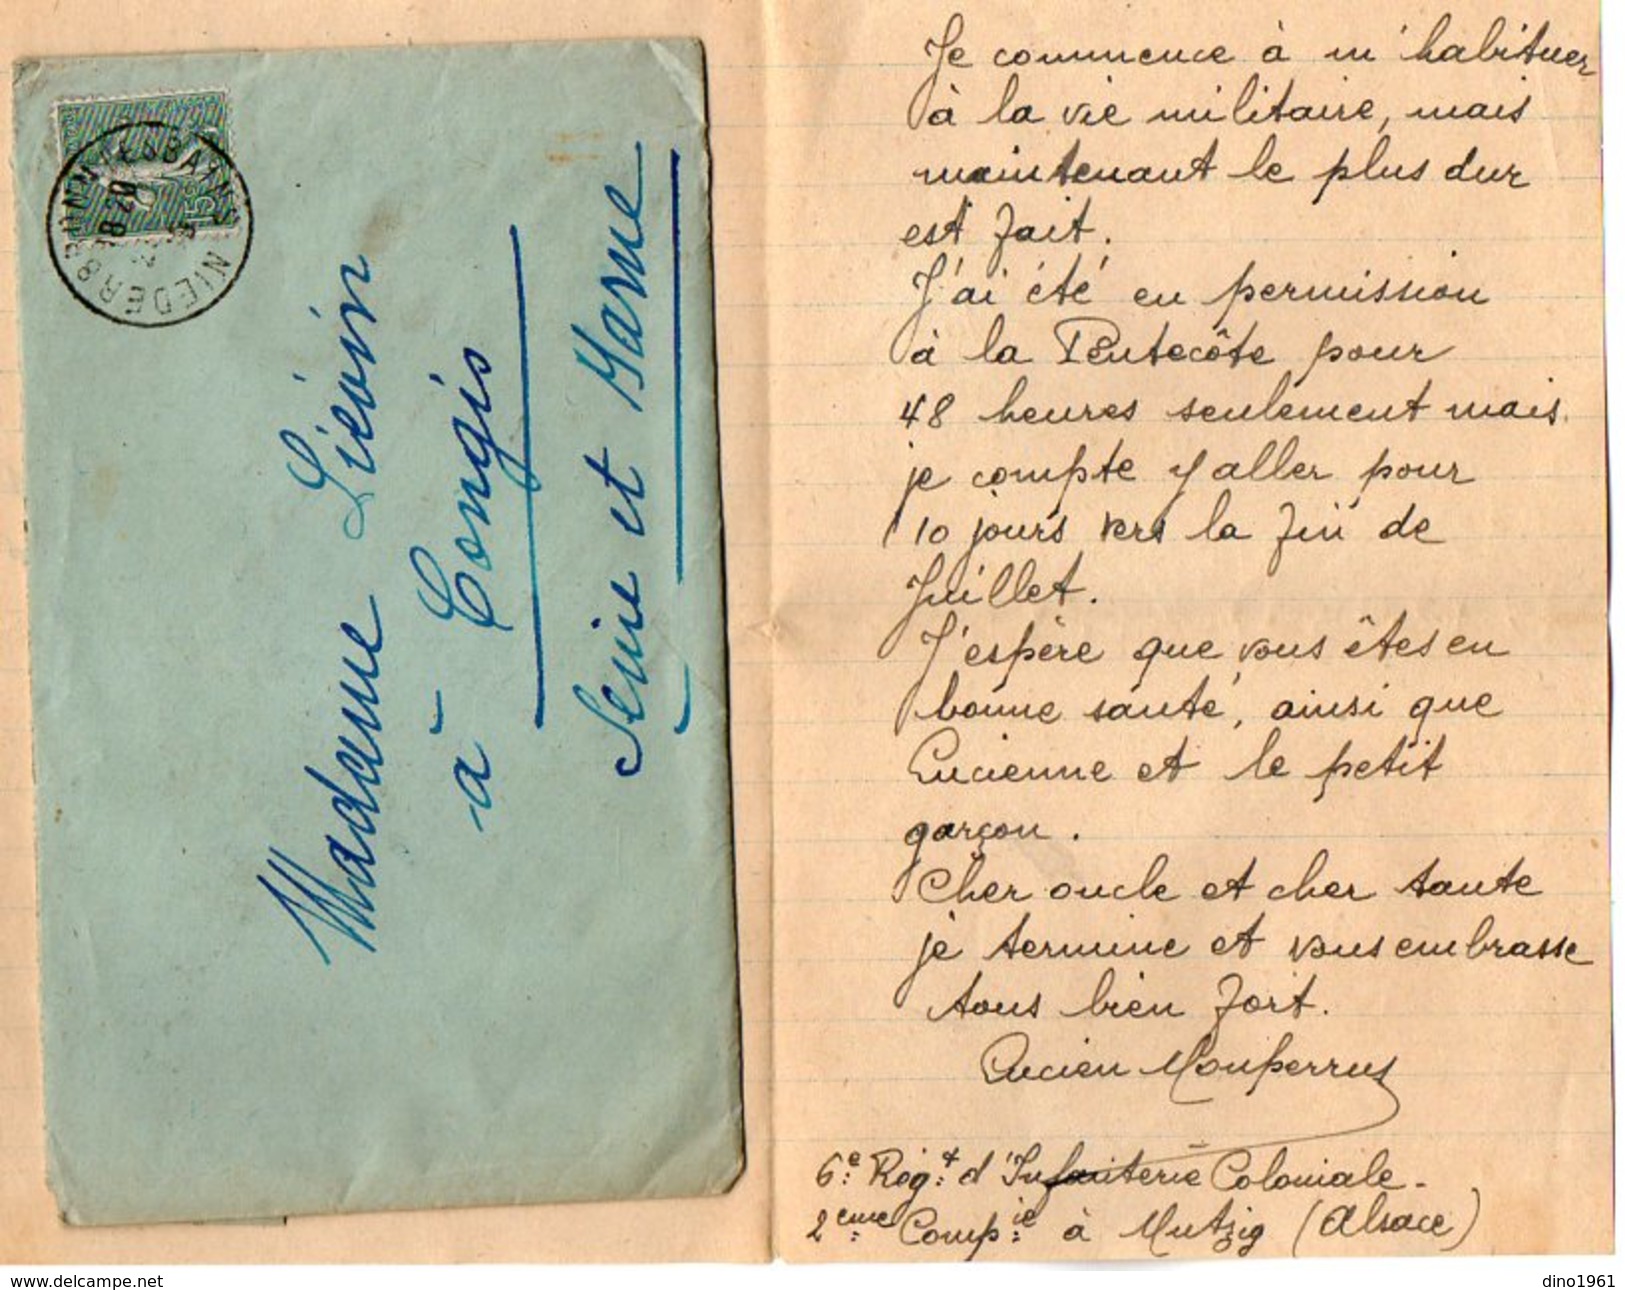 NIEDERBRONN LES BAINS
18 20
15c
Madame Liévin
à Congis
Seine et Marne
Je commence à m'habituer
à la vie militaire, mais
maintenant le plus dur
est fait.
J'ai été en permission
à la Pentecôte pour
48 heures seulement mais
je compte y aller pour
10 jours vers la fin de
Juillet.
J'espère que vous êtes en
bonne santé, ainsi que
Lucienne et le petit
garçon.
Cher oncle et cher tante
je termine et vous embrasse
tous bien fort.
Lucien Monperrus
6e Rég.t d'Infanterie Coloniale.
2eme Comp.ie à Mutzig (Alsace)
www.delcampe.net
dino1961